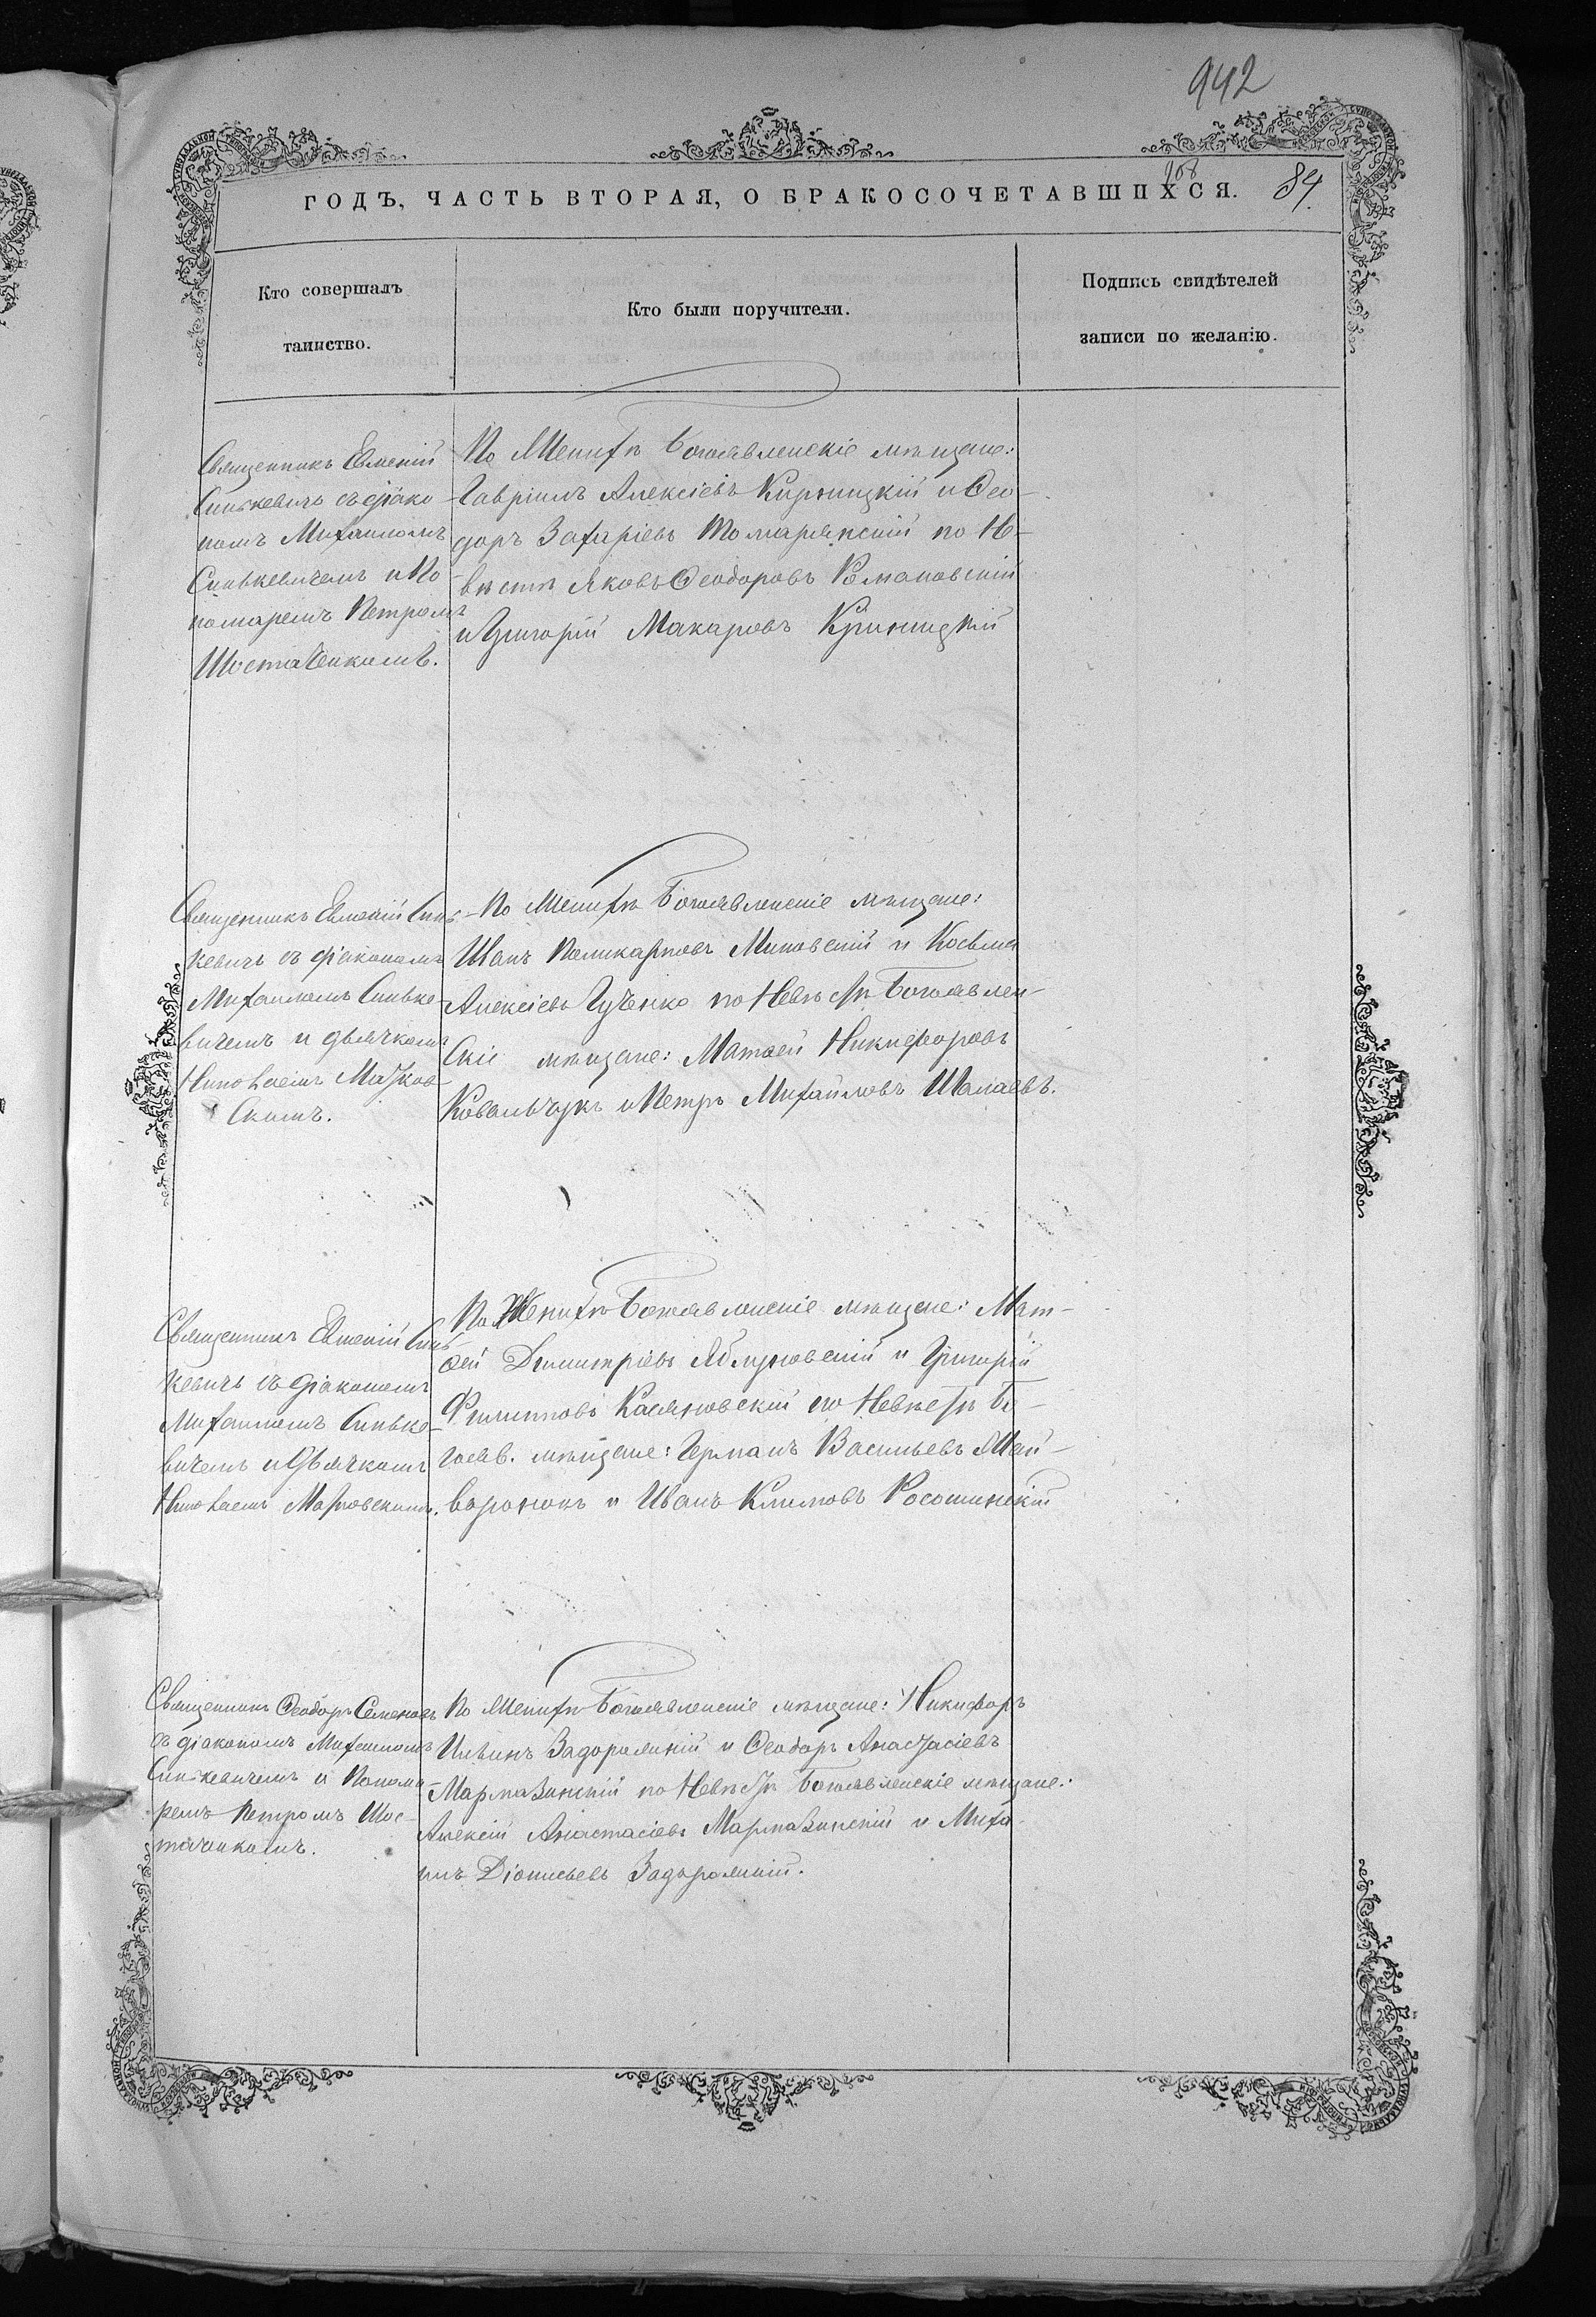 942
108
ГОДЪ, ЧАСТЬ ВТОРАЯ, О БРАКОСОЧЕТАВШИХСЯ. 84.
Кто совершалъ
таинство.
Кто были поручители.
Подпись свидѣтелей
записи по желанію.
Священникъ Евменій
Синькевичъ съ діако
номъ Михаиломъ
Синькевичемъ и По
номаремъ Петромъ
Шостаченкомъ.
По Женихѣ Богоявленскіе мѣщане:
Гавріилъ Алексіевъ Кирницкій и Ѳео-
доръ Захаріевъ по Не-
вѣстѣ Яковъ Ѳеодоровъ Романовскій
и Григорій Макаровъ
Священникъ Евменій Синь-
кевичъ съ діакономъ
Михаиломъ Синьке-
вичемъ и дьячкомъ
Николаемъ
Скимъ.
По Женихѣ Богоявленскіе мѣщане:
Иванъ Поликарповъ и Косьма
Алексіевъ Гученко по Невѣстѣ Богоявлен-
Скіе мѣщане: Матѳей Никифоровъ
Ковальчукъ и Петръ Михайловъ Шалаевъ.
Священникъ Евменій Синь-
кевичъ съ діакономъ
Михаиломъ Синьке-
вичемъ и Дьячкомъ
Николаемъ
По Женихѣ Богоявленскіе мѣщане: Мат-
ѳей Димитріевъ Яблуновскій и Григорій
Филипповъ Касяновскій по Невѣстѣ Бо-
гояв. мѣщане: Германъ Васильевъ Шай-
воронокъ и Иванъ Климовъ Росошинскій
Священникъ Ѳеодоръ Семеновъ
съ діакономъ Михаиломъ
Синькевичемъ и Понома-
ремъ Петромъ Шос-
таченкомъ.
По Женихѣ Богоявленскіе мѣщане: Никифоръ
Ильинъ Задорожній и Ѳеодоръ Анастасіевъ
Мармазинскій по Невѣстѣ Богоявленскіе мѣщане:
Алексій Анастасіевъ Мармазинскій и Миха-
илъ Діонисьевъ Задорожній.